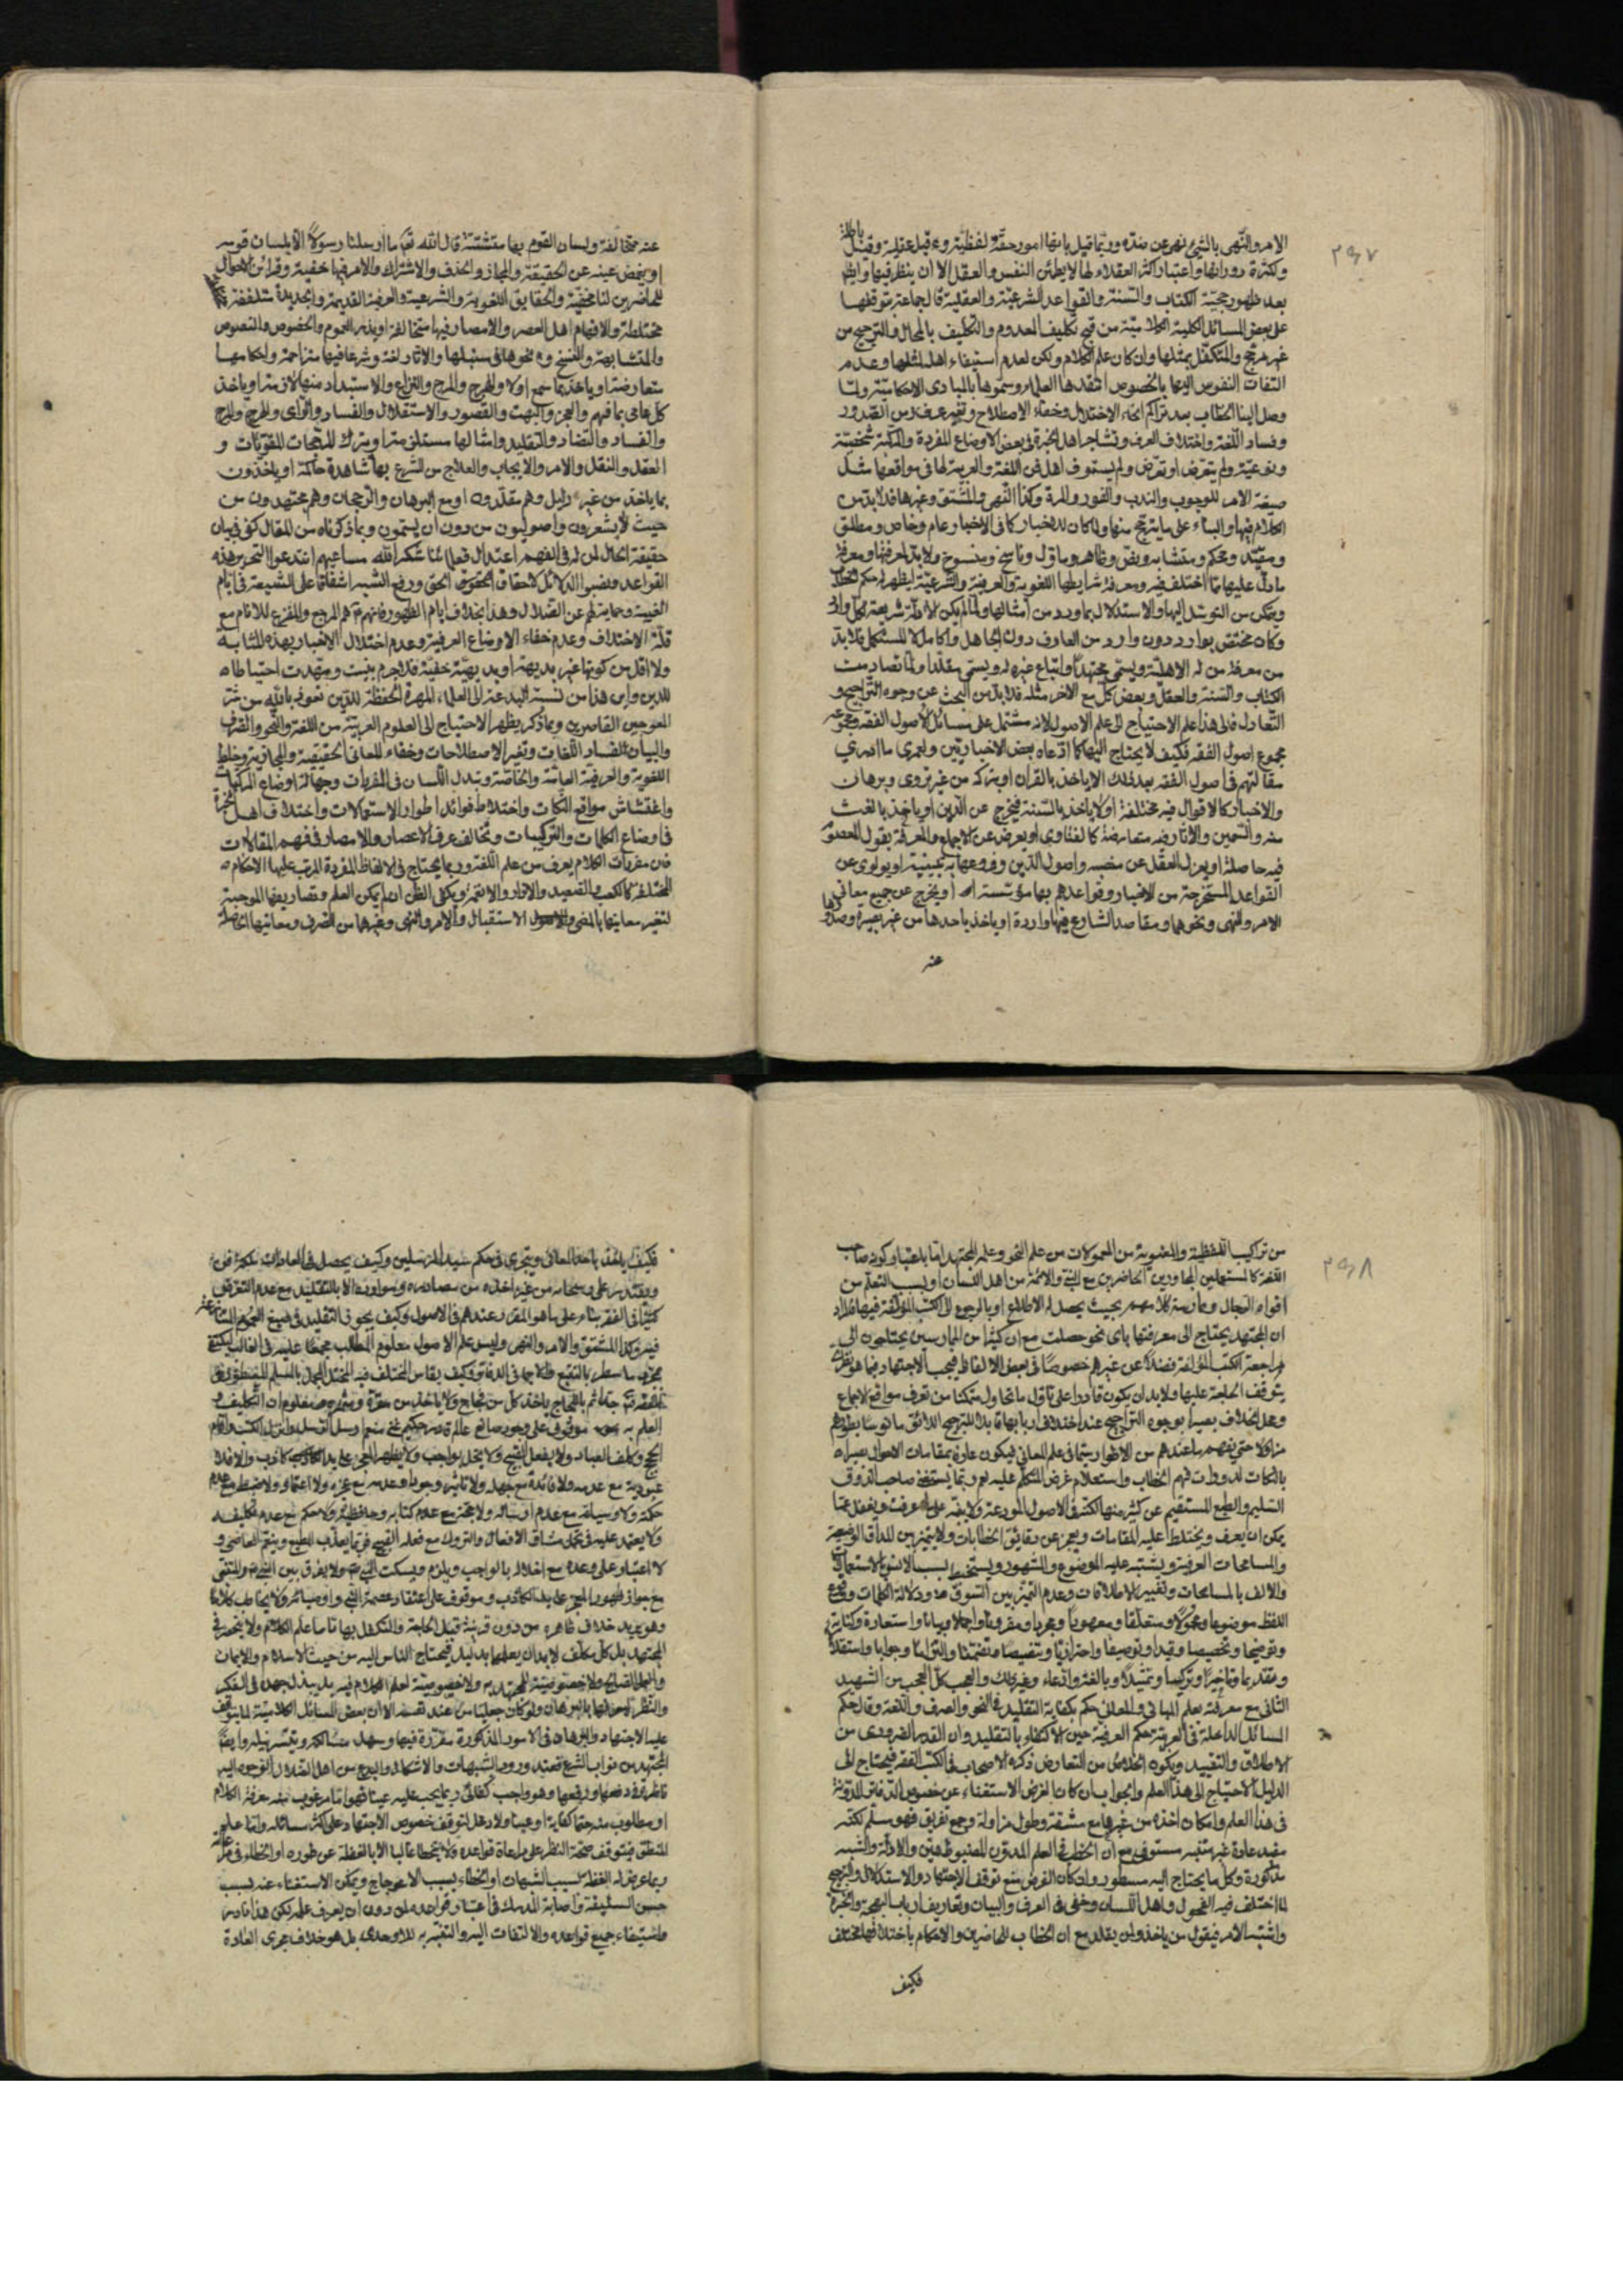 ٢٩٧
الامر والنهى بالشئ نهى عن ضده وربما قيل بانها امور حقة لفظية وقيل عقلية وقيل باطلة
وكثرة دورانها واعتبار اكثر العقلاء لها لا يطمئن النفس والعقل الا ان ينظر فيها وايضا
بعد ظهور حجية الكتاب والسنة والقواعد الشرعية والعقلية قال جماعة بتوقفها
على بعض المسائل الكلية الكلامية من قبح تكليف المعدوم والتكليف بالمحال والترجيح من
غير مرجح والمتكفل بمثلها وان كان علم الكلام ولكن لعدم استيفاء اهله لمثلها وعدم
التفات النفوس اليها بالخصوص العلماء وسموها بالمبادى الاحكامية ولما
وصل الينا الخطاب بعد تراكم انحاء الاختلال وخفاء الاصطلاح وتغير عرف من الصدور
وفساد اللغة واختلاف العرف وتشاجر اهل الخبرة فى بعض الاوضاع المفردة والمركبة شخصية
ونوعية ولم يتعرض او تعرض ولم يستوف اهل فن اللغة والعربية لها فى مواقعها مثل
صيغة الامر للوجوب والندب والفور والمرة وكذا النهى والمشتق وغيرها فلا بد من
الكلام فيها والبناء على ما يترجح منها ولما كان للاخبار كما فى الاخبار عام وخاص ومطلق
ومقيد ومحكم ومتشابه ونص وظاهر وماول وناسخ ومنسوخ ولا بد لمعرفتها ومعرفة
ما دل عليها مما اختلف فيه ومعرفة شرايطها اللغوية والعرفية والشرعية ليظهر له حكم الخطاب
ويتمكن من التوسل اليها والاستدلال بما ورد من امثالها ولما لم يكن الادلة شريعة لكل وارد
وكان مختص بوارد دون وارد من العارف دون الجاهل والكامل لا للمستكمل فلا بد
من معرفة من له الاهلية ويسمى مجتهدا واتباع غيره له ويسمى مقلدا ولما تصادمت
الكتاب والسنة والعقل وبعض كل مع الاخر مثله فلا بد من البحث عن وجوه التراجيح و
التعادل فالى هذا علم الاحتياج الى علم الاصول لانه مشتمل على مسائل الاصول الفقه ومجموعه
مجموع اصول الفقه فكيف لا يحتاج اليها كما ادعاه بعض الاخباريين ولعمرى ما ادرى
مقالتهم فى اصول الفقه بعد ذلك الا ياخذ بالقران او يتركه من غير تروى وبرهان
والاخبار كالاقوال فيه مختلفة اولا ياخذ بالسنة فيخرج عن الدين او ياخذ بالغث
منه والسمين والاثار فيه متعارضة كالفتاوى او يعرض عن الاجماع والمعرفة بقول المعصوم
فيه حاصلة او يعزل العقل عن منصبه واصول الدين وفروعها به مبينة او يولوى عن
القواعد المستخرجة من الاخبار وقواعدهم بها مؤسسة او يخرج عن جميع معانى
الامر والنهى ونحوهما ومقاصد الشارع فيها واردة او ياخذ باحدها من غير بصيرة وضدها
عنه
عنه مخالفة ولسان القوم بها متشتتة قال الله تعالى ما ارسلنا رسولا الا بلسان قومه
او يغمض عينه عن الحقيقة والمجاز والحذف والاشتراك والامر فيها خفية وقرائن الاحوال
للحاضرين لنا مخفية والحقايق اللغوية والشرعية والعرفية القديمة والجديدة
مختلطة والافهام اهل العصر والامصار فيها متخالفة او يذر العموم والخصوص والنصوص
والمتشابهة والنسخ ونحوها فى سبلها والاثار لغة وشرعا فيها متزاحمة واحكامها
متعارضة او ياخذ بما سهم اولا والهرج والمرج والنزاع والاستبداد منها لازمة او ياخذ
كل عامى بما فهم والعجز والبهت والقصور والاستقلال والفساد والاراى والهرج والمرج
والفساد والتضاد والتقليد وامثالها مستلزمة او يترك المرجحات المقويات و
العقل والنقل والامر والايجاب والعلاج من الشرع بها شاهدة حاكمة او ياخذون
بما ياخذ من غير دليل وهم مقلدون او مع البرهان والرجحان وهم مجتهدون من
حيث لا يشعرون واصوليون من دون ان يسمون وبما ذكرناه من المقال كفى فى بيان
حقيقة الحال لمن له فى الفهم اعتدال فعلمائنا شكر الله مساعيهم ابتدعوا التحرير هذه
القواعد ونصبوا الدلائل لاحقاق الحقوق الحق ورفع الشبه اشفاقا على الشيعة فى ايام
الغيبة وحماية لهم عن الضلال وهذا بخلاف ايام الظهور فانهم هم المرجع والمفزع للانام مع
قلة الاختلاف وعدم خفاء الاوضاع العرفية وعدم اختلال الاخبار بهذه المثابة
ولا اقل من كونها غير بديهة او بديهية خفية فلا جرم بينت ومهدت احتياطا
للدين واين هذا من نسبة البدعة الى العلماء المهرة الحفظة للدين نعوذ بالله من شر
المعوجين القاصرين وبما ذكر يظهر الاحتياج الى العلوم العربية من اللغة والنحو والصرف
والبيان لفساد اللغات وتغير الاصطلاحات وخفاء المعانى الحقيقية والمجازية وخلط
اللغوية والعرفية العامة والخاصة وتبدل اللسان فى المفردات وجهالة اوضاع المركبات
واغتشاش مواقع النكات واختلاط فوائد اطوار الاستعمالات واختلاف اهل الخبرة
فى اوضاع الكلمات والتركيبات وتخالف عرف الاعصار والامصار فى فهم المقالات
فمن مفردات الكلام يعرف من علم اللغة وربما يحتاج فى الالفاظ المفردة المرتب عليها الاحكام
المختلفة كالكعب والصعيد والانتمى ويكفى الظن ان لم يمكن العلم وتصاريفها الموجبة
لتغير معانيها بالمضى والاستقبال والامر والنهى وغيرها من الصرف ومعانيها الحاصلة
٢٩٨
من تراكيبها اللفظية والمعنوية من المعمولات من علم النحو وعلم المجتهد اما باعتبار كونه صاحب
اللغة كالمستعملين المجاورين الحاضرين مع النبى والائمة من اهل اللسان او بسبب التعلم من
افواه الرجال وممارسة كلامهم بحيث يحصل له الاطلاع او بالرجوع الى الكتب المؤلفة فيها
ان المجتهد يحتاج الى معرفتها باى نحو حصلت مع ان كثيرا من الممارسين يحتاجون الى
مراجعة الكتب المؤلفة فضلا عن غيرهم خصوصا فى بعض الالفاظ فيجب الاجتهاد فيما هو نظرى
يتوقف الحاجة عليها ولا بد ان يكون قادرا على تاول ما تحاول متمكنا من تعرف مواقع الاجماع
ومحل الخلاف بصيرا بوجوه التراجيح عند اختلاف اربابها قابلا للترجيح الذائق مانوسا بطورهم
مزاولا حتى يفهم ما عندهم من الاطوار سيما فى علم المعانى فيكون عارفا بمقامات الاحوال بصيرا
بالنكات لدوران فهم الخطاب واستعلام غرض المتكلم عليه نعم ربما يستغنى صاحب الذوق
السليم والطبع المستقيم عن كثير منها لكنه فى الاصول المودعة ولا بد عليه عرفت ويغفل عما
يمكن ان يعرف ويختلط عليه المقامات ويعجز عن دقائق الخطابات ولا يتميز بين المذاق الوضعية
والمسامحات العرفية ويشتبه عليه الموضوع والمشهور ويستخبط بسبب الانس بالاستعمالات
والالف بالمسامحات وتغيير الاطلاقات وعدم التميز بين السوق ودلالة الكلمات ووضع
اللفظ موضوعا ومحمولا ومتعلقا ومعمولا ومجردا ومقرونا واجمالا وبيانا واستعارة وكناية
وتوضيحا وتخصيصا وقيدا وتوصيفا واحترازيا وتنصيصا وتضمنا والتزاما وجوابا واستقلالا
وتقديما وتاخيرا وتركيبا وتمثيلا وبالغير وادعاء وغير ذلك والعجب كل العجب من الشهيد
الثانى مع معرفته بعلم المبانى والمعانى حكم بكفاية التقليد فى النحو والصرف واللغة وقال حكم
المسائل الداخلة فى العربية حكم العربية حين الاكتفاء بالتقليد وان القدر الضرورى من
الاطلاق والتقييد وكيفية الخلاص من التعارض ذكره الاصحاب فى الكتب الفقه فيحتاج الى
الدليل الاحتياج الى هذا العلم والجواب ان كان الغرض الاستغناء عن خصوص الدفاتر المدونة
فى هذا العلم وامكان اخذه من غيرها مع مشقة وطول مزاولة وجمع تفريق فهو مسلم لكنه
مفيد عادة غير متيسر مستوفى مع ان الخطب فى العلم المدون المضبوط هين والادلة والشبه
مذكورة وكل ما يحتاج اليه مسطور وان كان الغرض منع توقف الاجتهاد والاستدلال والترجيح
لما اختلف فيه الفحول واهل اللسان وخفى فى العرف والبيان وتعاريف ارباب البهجة والخبرة
واشتبه الامر فيقول من ياخذ ولمن يقلد مع ان الخطاب للحاضرين والاحكام باختلافها مختلف
فكيف
فكيف ياخذ باحد المعانى ويتجرى فى حكم سيد المرسلين وكيف يحصل فى العادات
ويقتدر على من غير اخذه من مصادره وموارده الا بالتقليد مع عدم التعرض
كثيرا فى الفقه بناء على ما هو المقرر عندهم فى الاصول وكيف يجوز التقليد فى صيغ العموم
فيه وكذا المشتق والامر والنهى وليس علم الاصول معلوم المطالب مجمعا عليه فى الغالب ليكتفى
بمجرد ما سطر بالتتبع وكيف يقاس المختلف فيه المختل المجمل بالمسلم المضبوط
العلم به موقوف على وجود صانع عالم قادر حكيم غنى منعم ارسل الرسل وانزل الكتب واقام
الحجج وكلف العباد ولا يفعل القبيح ولا يخل بواجب ولا يظهر المعجز على يد الكاذب والا فلا
عبودية مع عدمه ولا فائدة مع جهله ولا تاثير وجودا وعدما مع عجزه ولا اعتماد ولا ضبط مع عدم
حكمته ولا وسيلة مع عدم ارساله ولا حجة مع عدم كتابه وحافظيه ولا حكم مع عدم تكليفه
ولا يعتمد عليه فى تحمل مشاق الافعال والتروك مع فعله القبيح فربما يعذب المطيع وينعم العاصى و
لا اعتبار على وعده مع اخلاله بالواجب ويلزم ويسكت النبى ولا يفرق بين النبى والمتنبى
مع جواز ظهور المعجز على يد الكاذب وموقوف على اعتقاد عصمة النبى واوصيائه ولا يخاطب كلاما
وهو يريد خلاف ظاهره من دون قرينة قبل الحاجة والمتكفل بها تماما علم الكلام ولا ينحصر فى
المجتهد بل كل مكلف لا بد ان يعلمها بدليله فيحتاج الناس اليه من حيث الاسلام والايمان
والعمل الصالح ولا خصوصية للمجتهد ولا خصوصية لعلم الكلام فيه بل يبذل جهده فى الفكر
والنظر لاحرازها بالبرهان ولو كان جعليا من عند نفسه الا ان بعض المسائل الكلامية لما يتوقف
عليه الاجتهاد والبرهان فى الامور المذكورة مقررة فيها وسهل مسالكه وتيسر نيله وايضا
المجتهدين نواب الشرع فعند ورود الشبهات والاشكال والبدع من اهل الضلال
ناظرة فى دفعها ورفعها وهو واجب كفائى ربما يجب عليه عينا فهو اما مرغوب منه معرفة الكلام
او مطلوب منه حتما كفاية او عينا ولا دخل لتوقف خصوص الاجتهاد على اكثر مسائله واما علم
المنطق فيتوقف صحة النظر على مراعاة قواعده ولا يتخطا غالبا الا بالغفلة عن طوره او الخطاء فى
وربما عرض له الغفلة بسبب الشبهات او الخطاء بسبب الاعوجاج ويمكن الاستغناء عنه بسبب
حسن السليقة واصابة المدرك فى اعتبار قواعده من دون ان يعرف علمه لكن هذا نادر
واستيفاء جميع قواعده والالتفات اليه والتنبه به للاوحدى بل هو خلاف مجرى العادة